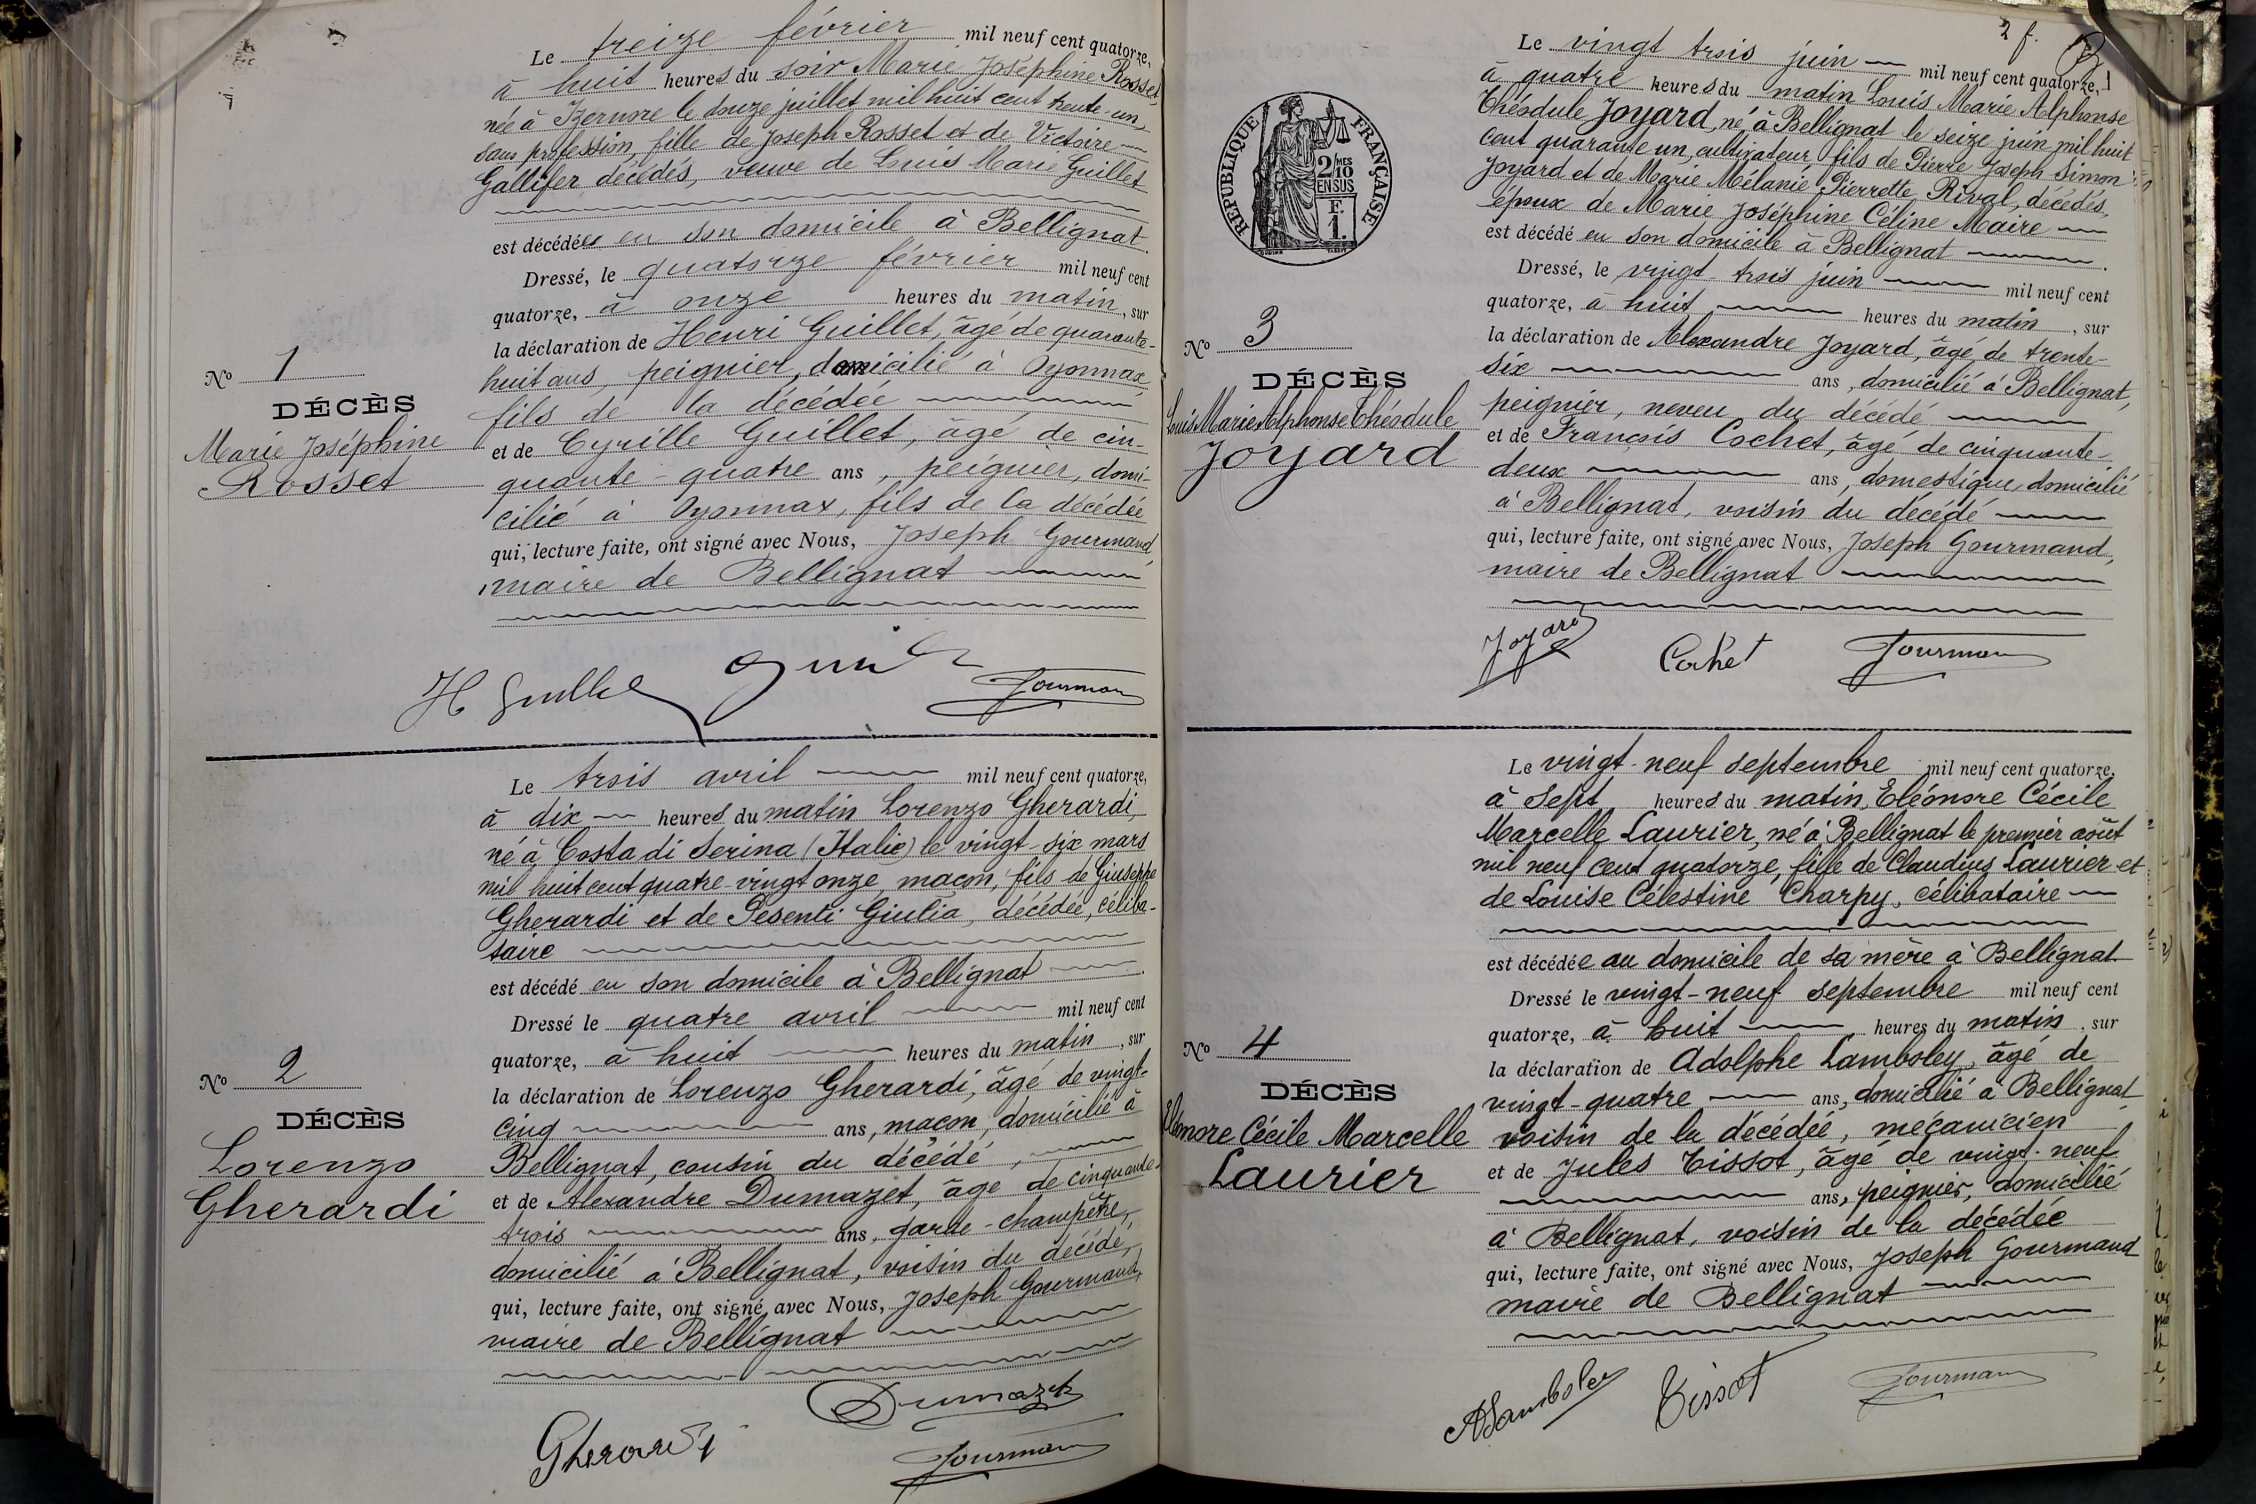 Le treize février mil neuf cent quatorze,
à huit heures du soir Marie Joséphine Rosset,
née à Izernore le douze juillet mil huit cent trente-un,
sans profession, fille de Joseph Rosset et de Victoire
Gallifer décédés, veuve de Louis Marie Guillet
est décédée en son domicile à Bellignat.
Dressé, le quatorze février mil neuf cent
quatorze, à onze heures du matin, sur
la déclaration de Henri Guillet, âgé de quarante-
huit ans, peignier, domicilié à Oyonnax,
fils de la décédée
et de Cyrille Guillet, âgé de cin-
quante-quatre ans, peignier, domi-
cilié à Oyonnax, fils de la décédée
qui, lecture faite, ont signé avec Nous, Joseph Gourmand,
maire de Bellignat
Nº 1
DÉCÈS
Marie Joséphine
Rosset
H Guillet
Gourmand
Le trois avril mil neuf cent quatorze,
à dix heures du matin Lorenzo Gherardi,
né à Costa di Serina (Italie) le vingt-six mars
mil huit cent quatre-vingt onze, maçon, fils de Giuseppe
Gherardi et de Pesenti Giulia, décédée, céliba-
taire
est décédé en son domicile à Bellignat.
Dressé le quatre avril mil neuf cent
quatorze, à huit heures du matin, sur
la déclaration de Lorenzo Gherardi, âgé de vingt-
cinq ans, maçon, domicilié à
Bellignat, cousin du décédé,
et de Alexandre Dumazet, âgé de cinquante-
trois ans, garde-champêtre,
domicilié à Bellignat, voisin du décédé,
qui, lecture faite, ont signé avec Nous, Joseph Gourmand,
maire de Bellignat
Nº 2
DÉCÈS
Lorenzo
Gherardi
Dumazet
Gherardi
Gourmand
2 f.
RÉPUBLIQUE FRANÇAISE
2 MES
10
EN SUS
F.
1.
Le vingt trois juin mil neuf cent quatorze,
à quatre heures du matin Louis Marie Alphonse
Théodule Joyard, né à Bellignat le seize juin mil huit
cent quarante un, cultivateur, fils de Pierre Joseph Simon
Joyard et de Marie Mélanie Pierrette Rival, décédés,
époux de Marie Joséphine Céline Maire
est décédé en son domicile à Bellignat.
Dressé, le vingt trois juin mil neuf cent
quatorze, à huit heures du matin, sur
la déclaration de Alexandre Joyard, âgé, de trente-
six ans, domicilié à Bellignat,
peignier, neveu du décédé
et de François Cochet, âgé de cinquante-
deux ans, domestique, domicilié
à Bellignat, voisin du décédé
qui, lecture faite, ont signé avec Nous, Joseph Gourmand,
maire de Bellignat
Nº 3
DÉCÈS
Louis Marie Alphonse Théodule
Joyard
Joyard
Cochet
Gourmand
Le vingt-neuf septembre mil neuf cent quatorze,
à sept heures du matin, Eléonore Cécile
Marcelle Laurier, né à Bellignat le premier août
mil neuf cent quatorze, fille de Claudius Laurier et
de Louise Célestine Charpy, célibataire
est décédée au domicile de sa mère à Bellignat
Dressé le vingt-neuf septembre mil neuf cent
quatorze, à huit heures du matin, sur
la déclaration de Adolphe Lamboley, âgé de
vingt-quatre ans, domicilié à Bellignat
voisin de la décédée, mécanicien
et de Jules Tissot, âgé de vingt-neuf
ans, peignier, domicilié
à Bellignat, voisin de la décédée
qui, lecture faite, ont signé avec Nous, Joseph Gourmand
maire de Bellignat
Nº 4
DÉCÈS
Eléonore Cécile Marcelle
Laurier
ALamboley
Tissot
Gourmand